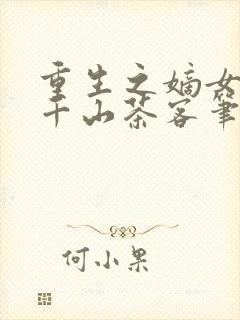 重生之嫡女
千山茶客笔
何小果